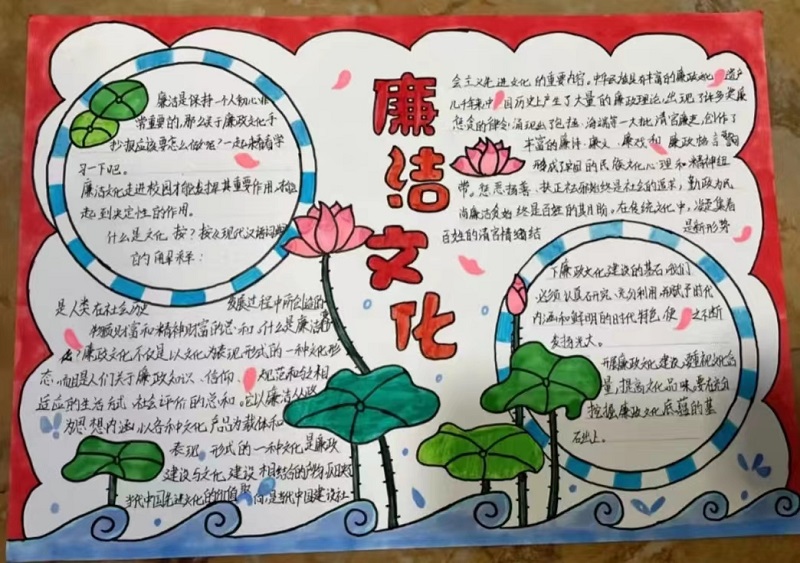 廉洁文化
廉洁是保持一个人初心非
常重要的,那么关于廉政文化手
抄报应该要怎么做呢?一起来看看学
习一下吧。
廉洁文化走进校园才能发挥其重要作用,才能
起到决定性的作用。
什么是文化 按?按照现代汉语词典
的解释:
是人类在社会历史 发展过程中所创造的
物质财富和精神财富的总和。什么是廉洁
?廉政文化不仅是以文化为表现形式的一种文化形
态,而且是人们关于廉政知识、信仰、规范和与相
适应的生活方式 社会评价的总和。它以廉洁从政
为思想内涵以各种中文化产品为载体和
表现 形式的一种文化是廉政
建设与文化建设相结合的产物,
当代中国先进文化的价值取向,是当代中国建设社
会主义先进文化的重要内容。中华民族具有丰富的廉政文化遗产
几千年来中国历史上产生了大量的廉政理论,出现了许多
涌现出了包拯、海瑞等一大批清官廉吏,创作了
丰富的廉诗、廉文、廉戏和 廉政格言警
形成了我国的民族文化心理和精神纽
带。惩恶扬善、扶正祛邪始终是社会的追求,勤政为民
清正廉洁始终是百姓的期盼。在传统文化中,凝聚着
百姓的清官情结 是新形势
下廉政文化建设的基石,我们
必须认真研究、充分利用,赋予时代
内涵和鲜明的时代特色,使之不断
发扬光大。
开展廉政文化建设,要重视文化含
量,提高文化品味,要充分
挖掘廉政文化底蕴的基
础上。